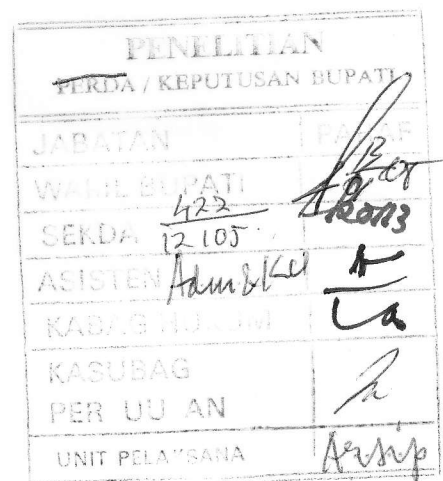 PENELITIAN
PERDA / KEPUTUSAN BUPATI
JABATAN PARAF
WAKIL BUPATI
SEKDA 422
12105
ASISTEN Adm & Keu
KABAG HUKUM
KASUBAG
PER UU AN
UNIT PELAKSANA Arsip